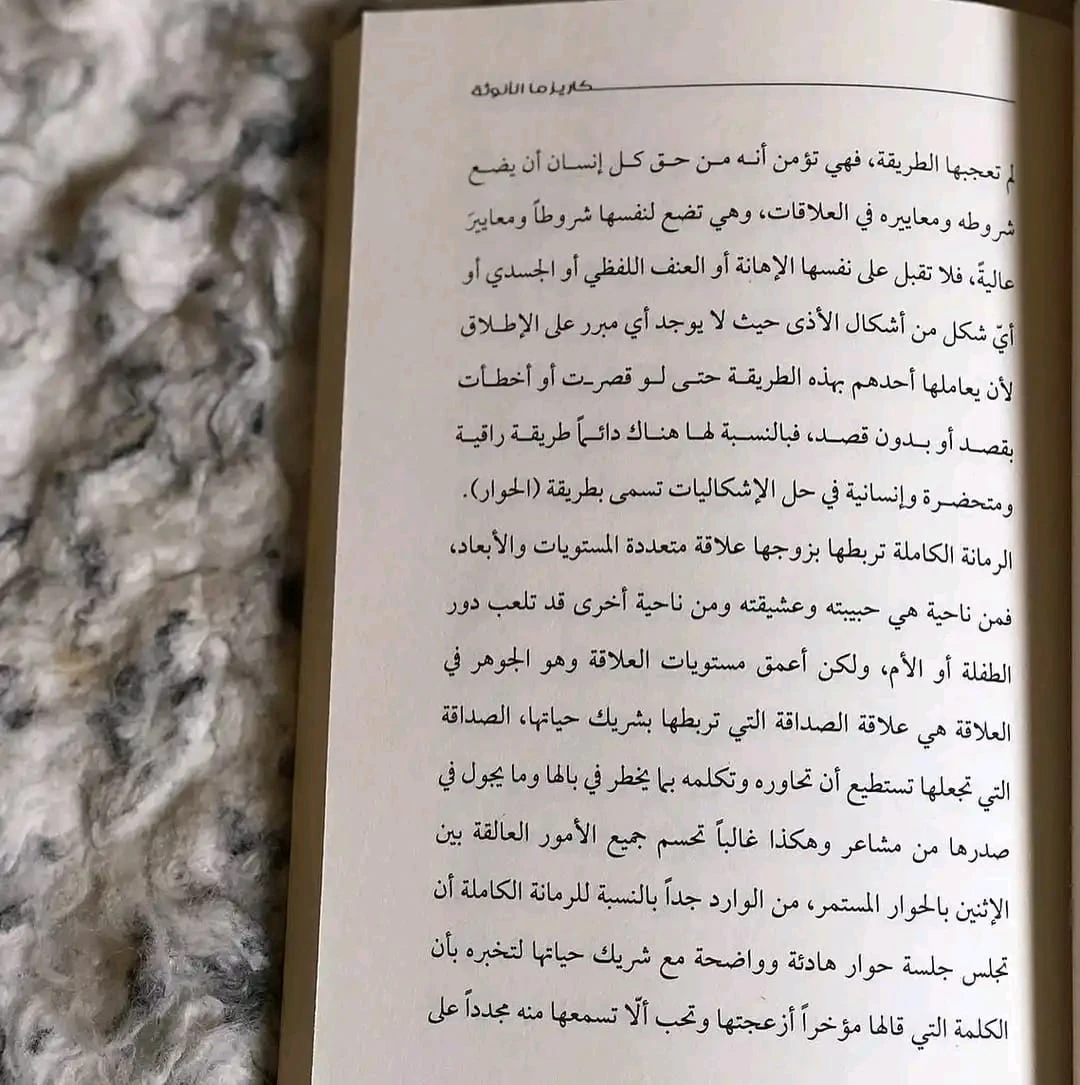 كاريزما الأنوثة
لم تعجبها الطريقة، فهي تؤمن أنه من حق كل إنسان أن يضع
شروطه ومعاييره في العلاقات، وهي تضع لنفسها شروطاً ومعاييرَ
عاليةً، فلا تقبل على نفسها الإهانة أو العنف اللفظي أو الجسدي أو
أيّ شكل من أشكال الأذى حيث لا يوجد أي مبرر على الإطلاق
لأن يعاملها أحدهم بهذه الطريقة حتى لو قصرت أو أخطأت
بقصد أو بدون قصد، فبالنسبة لها هناك دائماً طريقة راقية
ومتحضرة وإنسانية في حل الإشكاليات تسمى بطريقة (الحوار).
الرمانة الكاملة تربطها بزوجها علاقة متعددة المستويات والأبعاد،
فمن ناحية هي حبيبته وعشيقته ومن ناحية أخرى قد تلعب دور
الطفلة أو الأم، ولكن أعمق مستويات العلاقة وهو الجوهر في
العلاقة هي علاقة الصداقة التي تربطها بشريك حياتها، الصداقة
التي تجعلها تستطيع أن تحاوره وتكلمه بما يخطر في بالها وما يجول في
صدرها من مشاعر وهكذا غالباً تحسم جميع الأمور العالقة بين
الإثنين بالحوار المستمر، من الوارد جداً بالنسبة للرمانة الكاملة أن
تجلس جلسة حوار هادئة وواضحة مع شريك حياتها لتخبره بأن
الكلمة التي قالها مؤخراً أزعجتها وتحب ألّا تسمعها منه مجدداً على